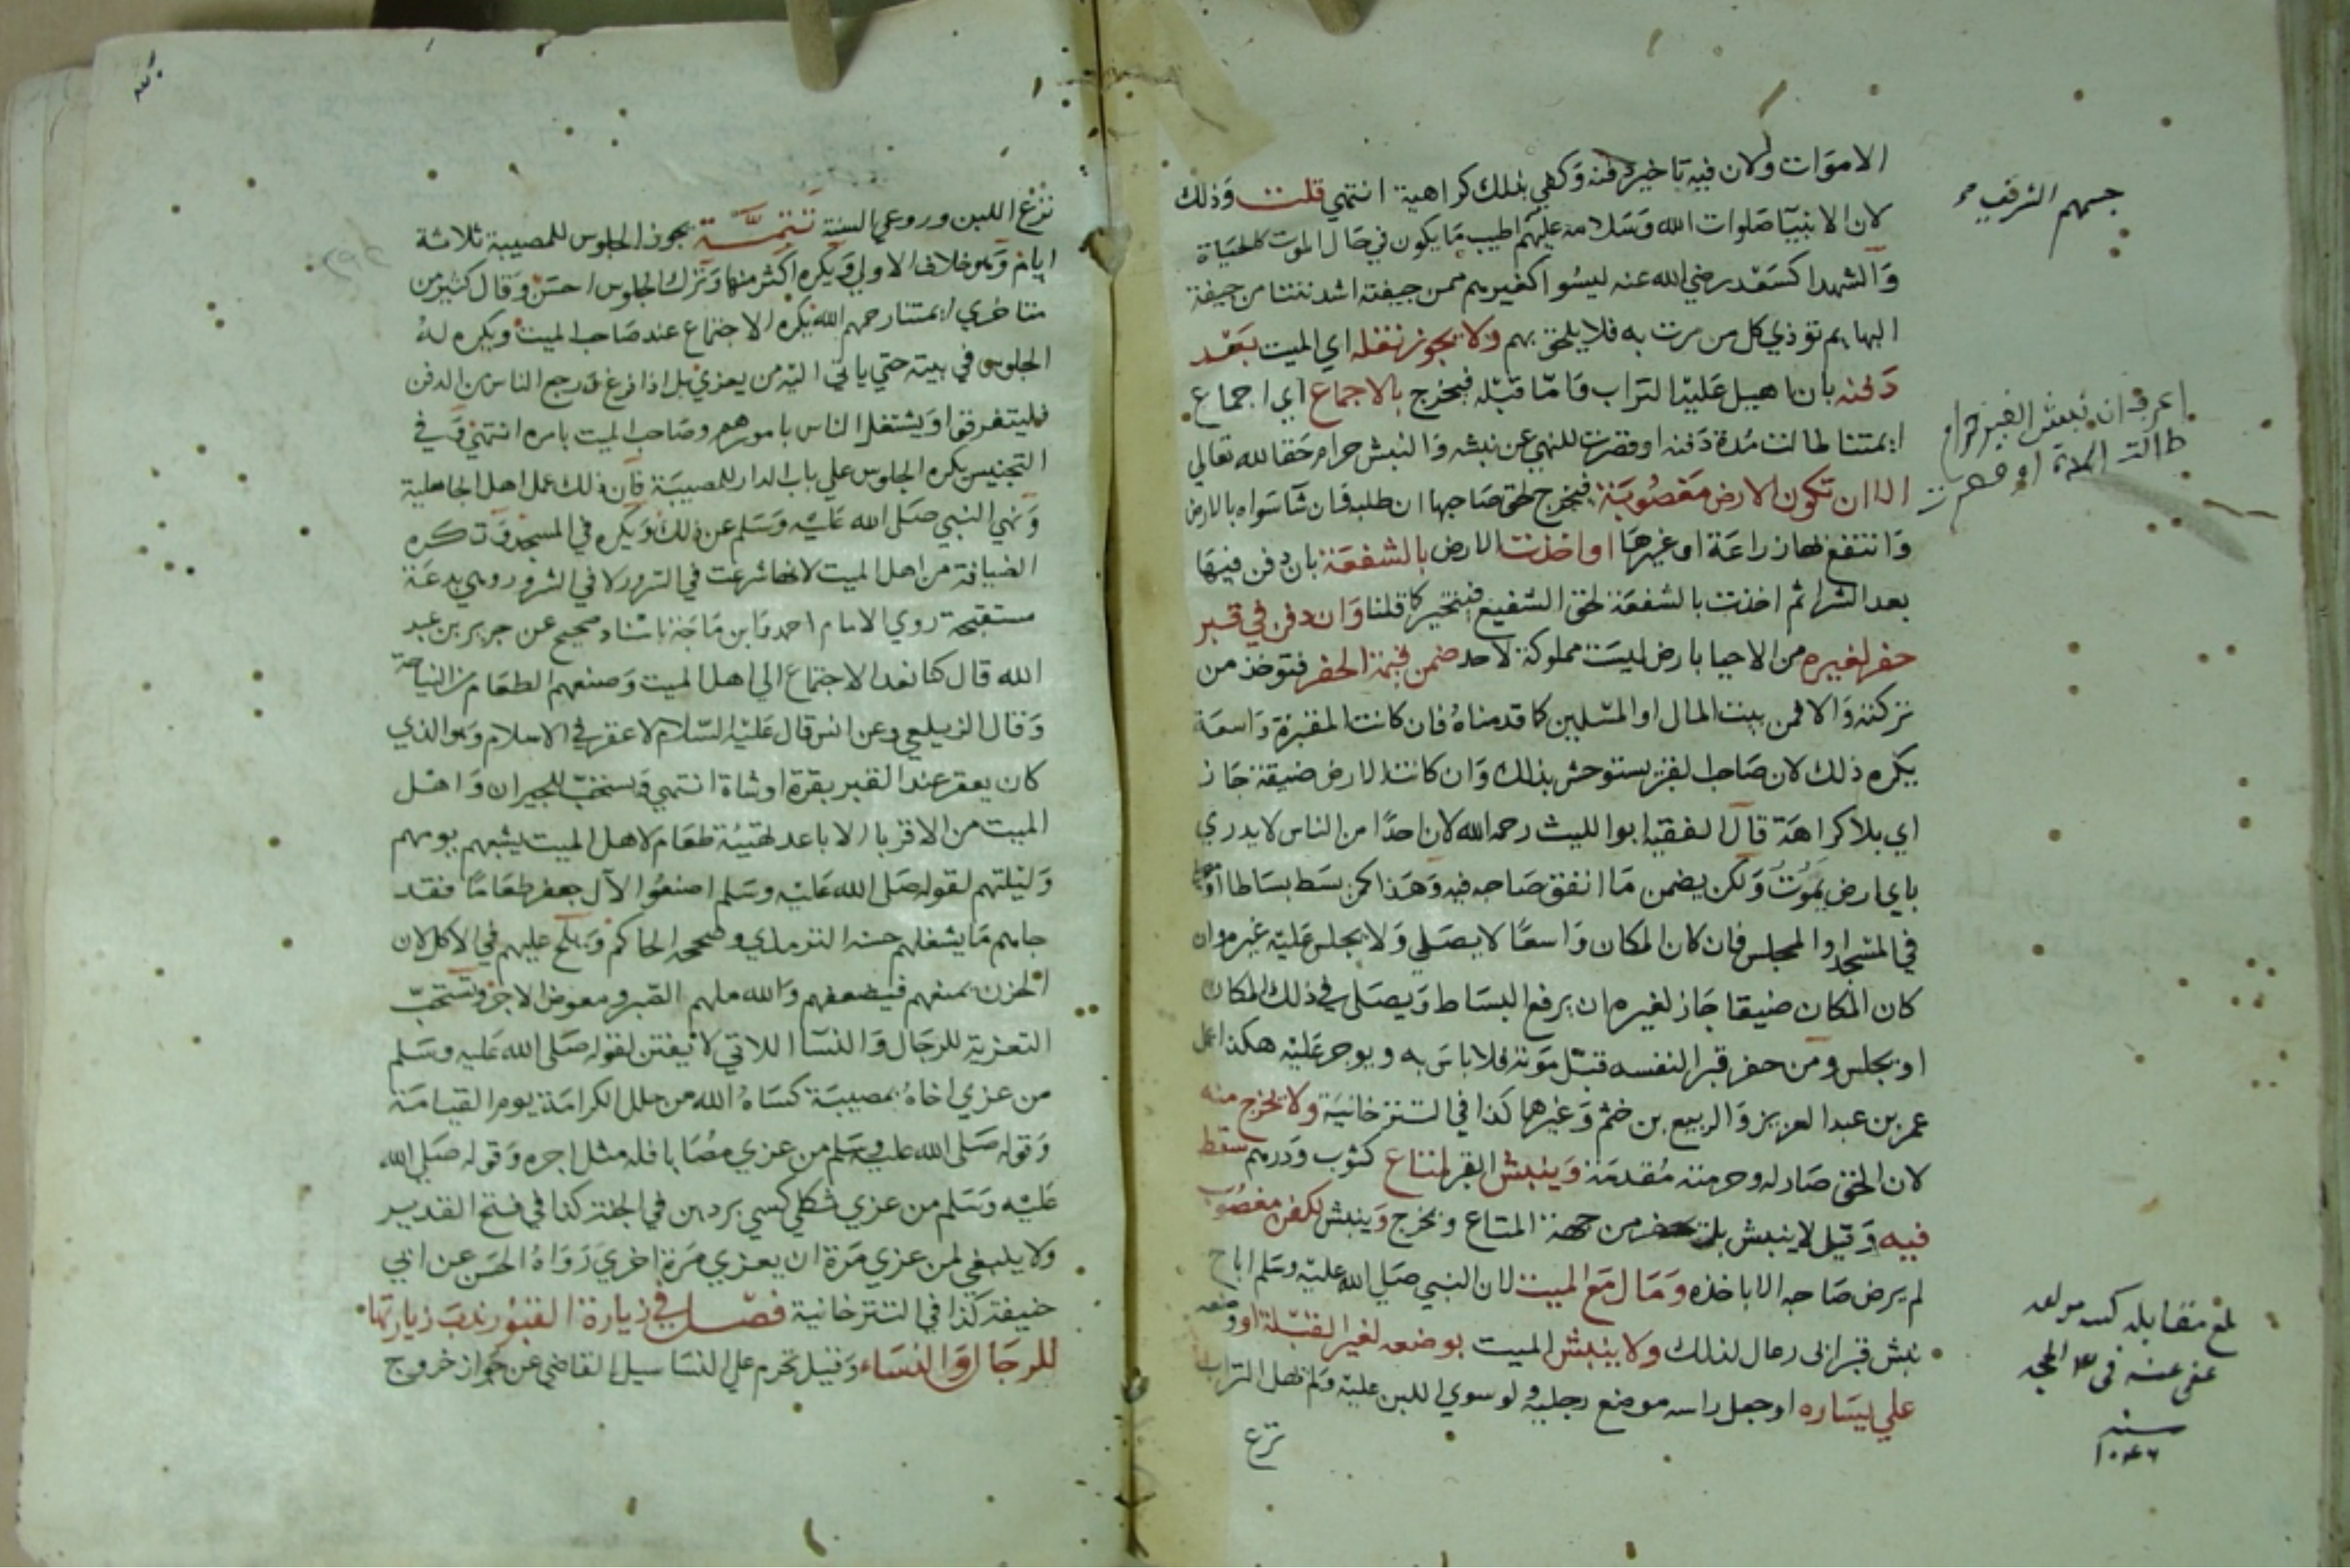 الاموات ولان فيه تاخير دفنه وكفي بذلك كراهية انتهي قلت وذلك
لان الانبيآ صلوات الله وسلامه عليهم اطيب ما يكون في حال الموت كالحياة
وآلشهدا كسعد رضي الله عنه ليسوا كغيرهم ممن جيفته اشد نتنا من جيفة
البهايم تؤذي كل من مرت به فلا يلحق بهم ولا يجوز نقله اي الميت بعد
دفنه بان اهيل عليه التراب واما قبله فيخرج بالاجماع اي اجماع
ايمتنا طالت مدة دفنه او قصرت للنهي عن نبشه والنبش حرام حقا لله تعالي
الا ان تكون الارض مغصوبة فيخرج لحق صاحبها ان طلبه فان شآ سواه بالارض
وانتفع بها زراعة او غيرها او اخذت الارض بالشفعة بان دفن فيها
بعد الشرا ثم اخذت بالشفعة لحق الشفيع فيتخير كما قلنا وان دفن في قبر
حفر لغيره من الاحيا بارض ليست مملوكة لاحد ضمن قيمة الحفر فتوخذ من
تركته والا فمن بيت المال او المسلمين كما قدمناه فان كانت المقبرة واسعة
يكره ذلك لان صاحب القبر يستوحش بذلك وان كانت الارض ضيقة جاز
اي بلا كراهة قال الفقيه ابو الليث رحمه الله لان احدًا من الناس لا يدري
باي ارض يموت ولكن يضمن ما انفق صاحبه فيه وهذا كمن بسط بساطا او
في المسجد او المجلس فان كان المكان واسعًا لا يصلي ولا يجلس عليه غيره وان
كان المكان ضيقا جاز لغيره ان يرفع البساط ويصلي في ذلك المكان
او يجلس ومن حفر قبرا لنفسه قبل موته فلا باس به ويوجر عليه هكذا عمل
عمر بن عبد العزيز والربيع بن خثم وغيرها كذا في التترخانية ولا يخرج منه
لان الحق صار له وحرمته مقدمة وينبش القبر لمتاع كثوب ودرهم سقط
فيه وقيل لا ينبش بل يحفر من جهة المتاع ويخرج وينبش لكفن مغصوب
لم يرض صاحبه الا باخذه ومال مع الميت لان النبي صلي الله عليه وسلم اباح
نبش قبر ابى رعال لذلك ولا ينبش الميت بوضعه لغير القبلة او وضعه
علي يساره او جعل راسه موضع رجليه ولو سوي اللبن عليه ولم يهل التراب
نزع
جسمهم الشريف
اعرف ان نبش القبر حرام
طالت المدة او قصرت
بلغ مقابلة كتبه مولفه
عفى عنه في
سنة
١٠٤٦
نزع اللبن وروعي السنة تتمة يجوز الجلوس للمصيبة ثلاثة
ايام وهو خلاف الاولي ويكره اكثر منها وترك الجلوس احسن وقال كثير من
متاخري ايمتنا رحمهم الله يكره الاجتماع عند صاحب الميت ويكره له
الجلوس في بيته حتي ياتي اليه من يعزي بل اذا فرغ ورجع الناس من الدفن
فليتفرقوا ويشتغل الناس بامورهم وصاحب الميت بامره انتهي وفي
التجنيس يكره الجلوس علي باب الدار للمصيبة فان ذلك عمل اهل الجاهلية
ونهي النبي صلي الله عليه وسلم عن ذلك ويكره في المسجد وتكره
الضيافة من اهل الميت لانها شرعت في السرور لا في الشرور وهي بدعة
مستقبحة روي الامام احمد وابن ماجة باسناد صحيح عن جرير بن عبد
الله قال كنا نعد الاجتماع الي اهل الميت وصنعهم الطعام من النياحة
وقال الزيلعي وعن انس قال عليه السلام لا عقر في الاسلام وهو الذي
كان يعقر عند القبر بقرة او شاة انتهي ويستحب للجيران واهل
الميت من الاقربا الاباعد تهيئة طعام لاهل الميت يشبعهم يومهم
وليلتهم لقوله صلي الله عليه وسلم اصنعوا لآل جعفر طعامًا فقد
جاهم ما يشغلهم حسنه الترمذي وصححه الحاكم ويلح عليهم في الاكل لان
الحزن يمنعهم فيضعفهم والله ملهم الصبر ومعوض الاجر وتستحب
التعزية للرجال والنسآ اللاتي لا يفتن لقوله صلي الله عليه وسلم
من عزي اخاه بمصيبة كساه الله من حلل الكرامة يوم القيامة
وقوله صلي الله عليه وسلم من عزي مصابا فله مثل اجره وقوله صلي الله
عليه وسلم من عزي ثكلي كسي بردين في الجنة كذا في فتح القدير
ولا ينبغي لمن عزي مرة ان يعزي مرة اخري رواه الحسن عن ابي
حنيفة كذا في التترخانية فصل في زيارة القبور ندب زيارتها
للرجال والنساء وقيل تحرم علي النسا سيل القاضي عن جواز خروج